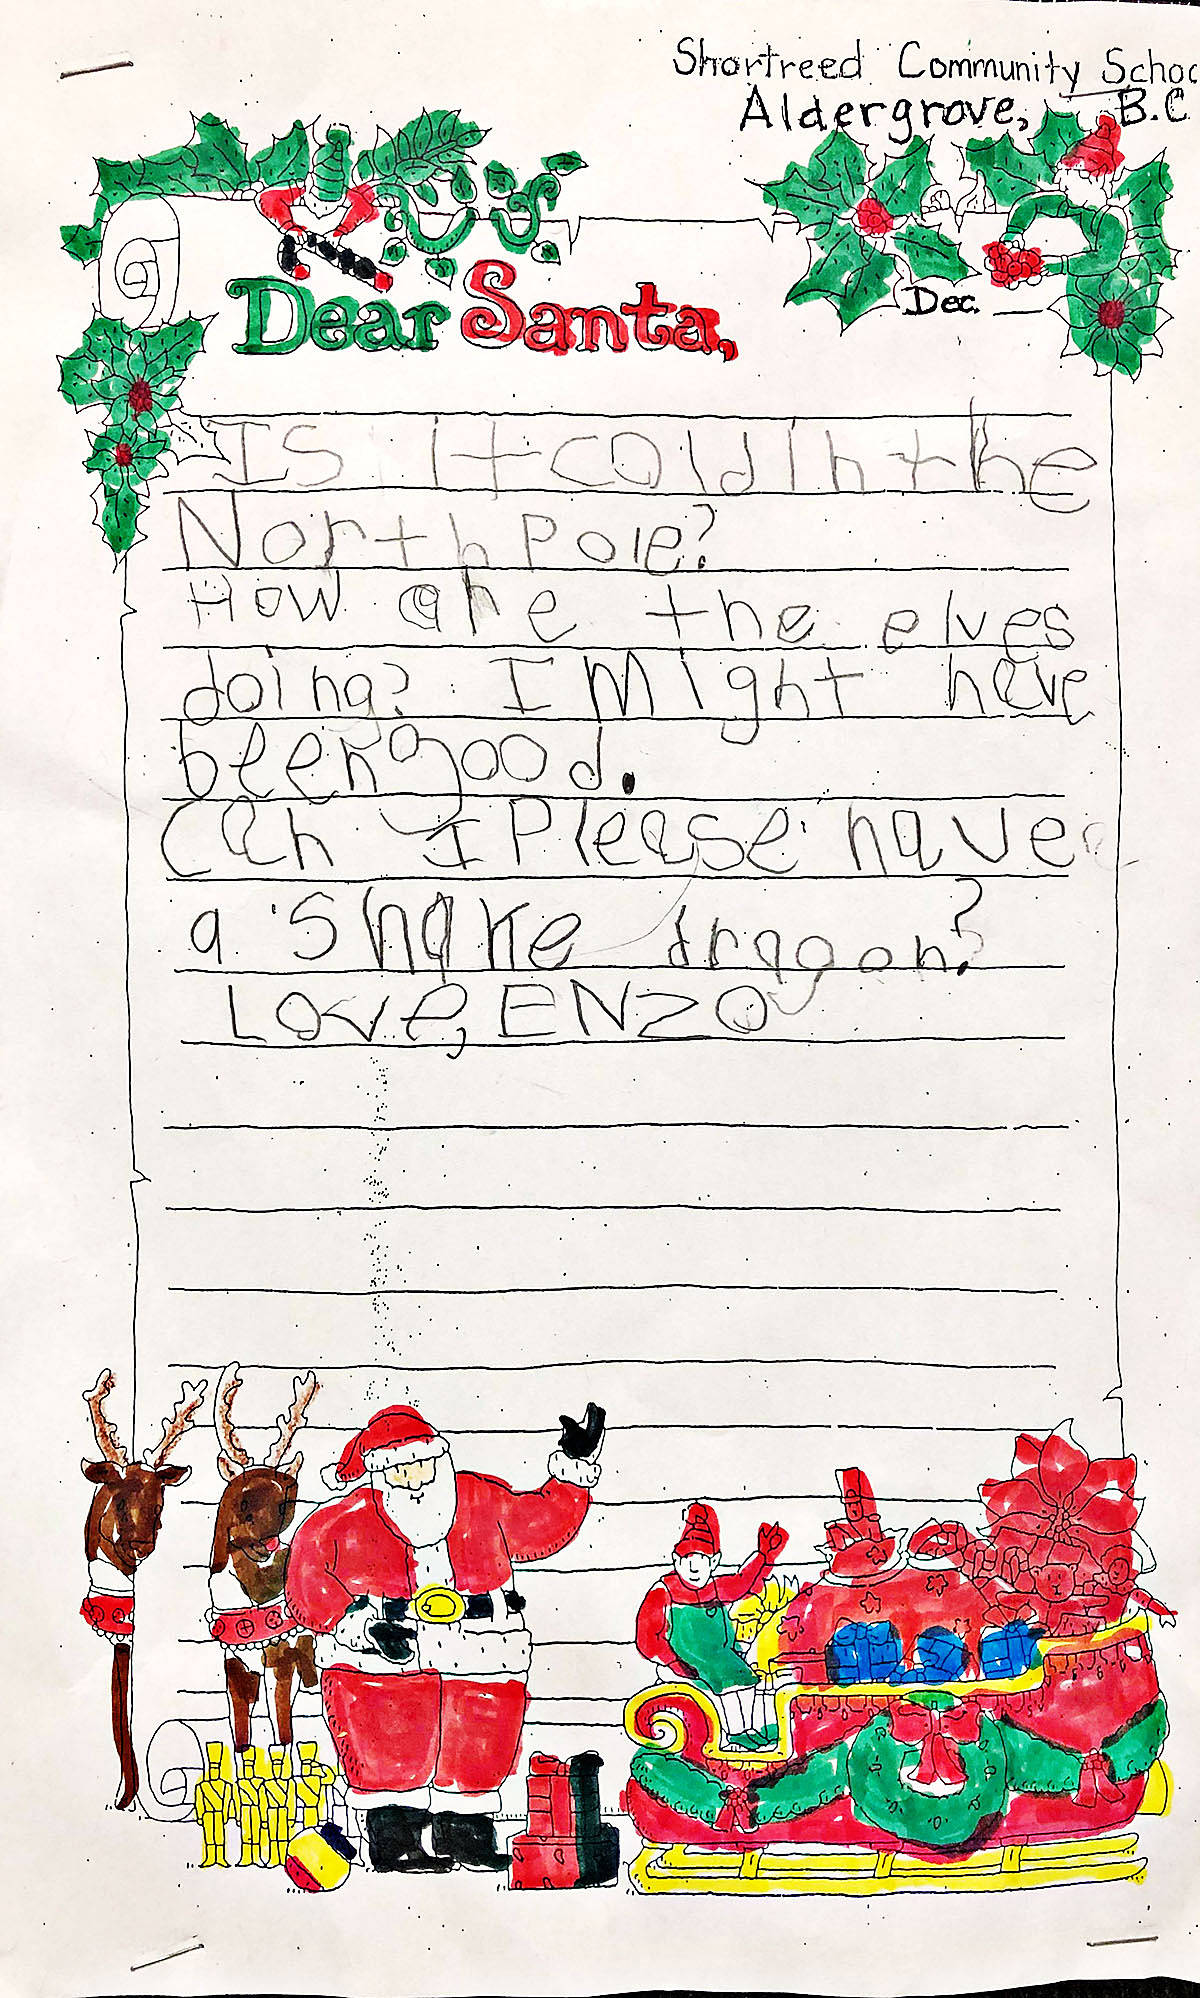 Shortreed Community Schoo
Aldergrove, B.C
Dec.
Dear Santa,
Is it cold in the
North Pole?
How are the elves
doing? I Might have
been good.
Can I Please have
a snake dragon?
Love, ENZO